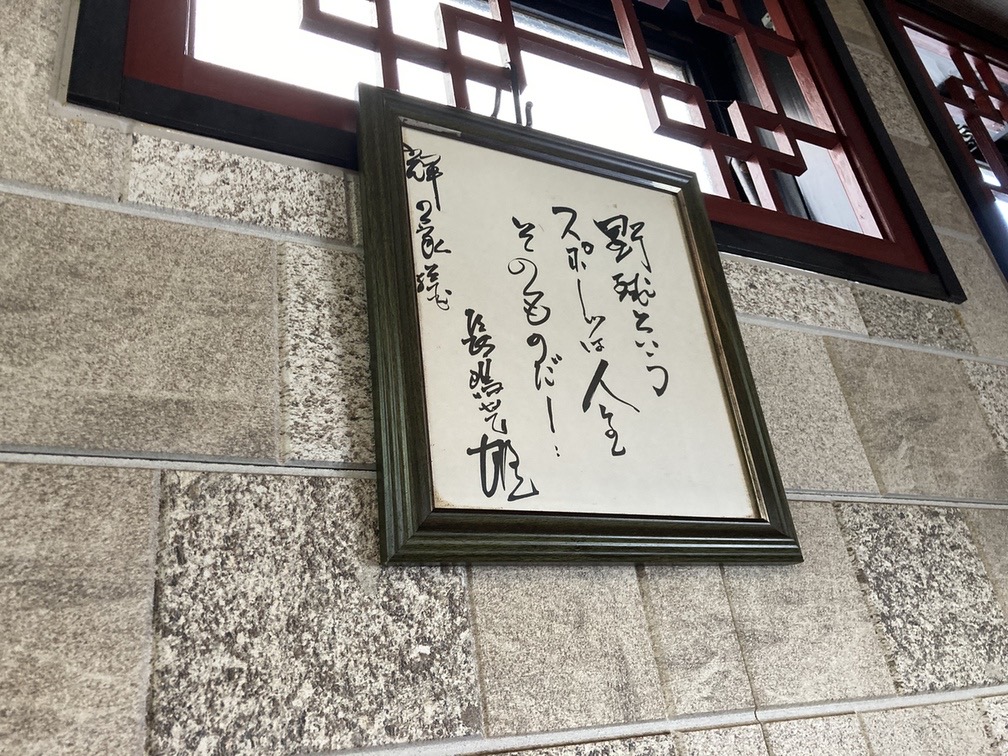 野球という
スポーツは人生
そのものだー…
長嶋茂雄
輝